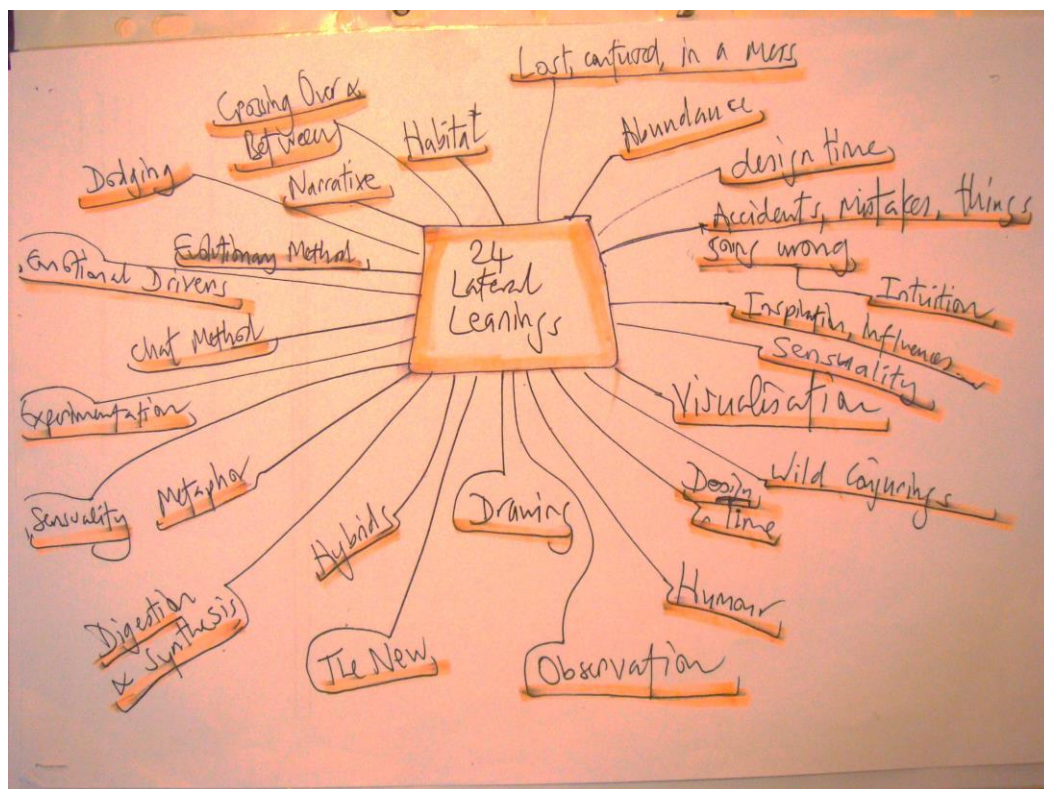 24
Lateral
Leanings
Lost, confused, in a mess
Abundance
design time
Accidents, mistakes, things
going wrong
Intuition
Inspiration, Influences...
Sensuality
Visualisation
Wild Conjurings
Design
Time
Humour
Observation
Drawing
The New
Hybrids
Digestion
& Synthesis
Metaphor
Sensuality
Experimentation
Chat Method
Emotional Drivers
Evolutionary Method
Dodging
Narrative
Crossing Over &
Between
Habitat